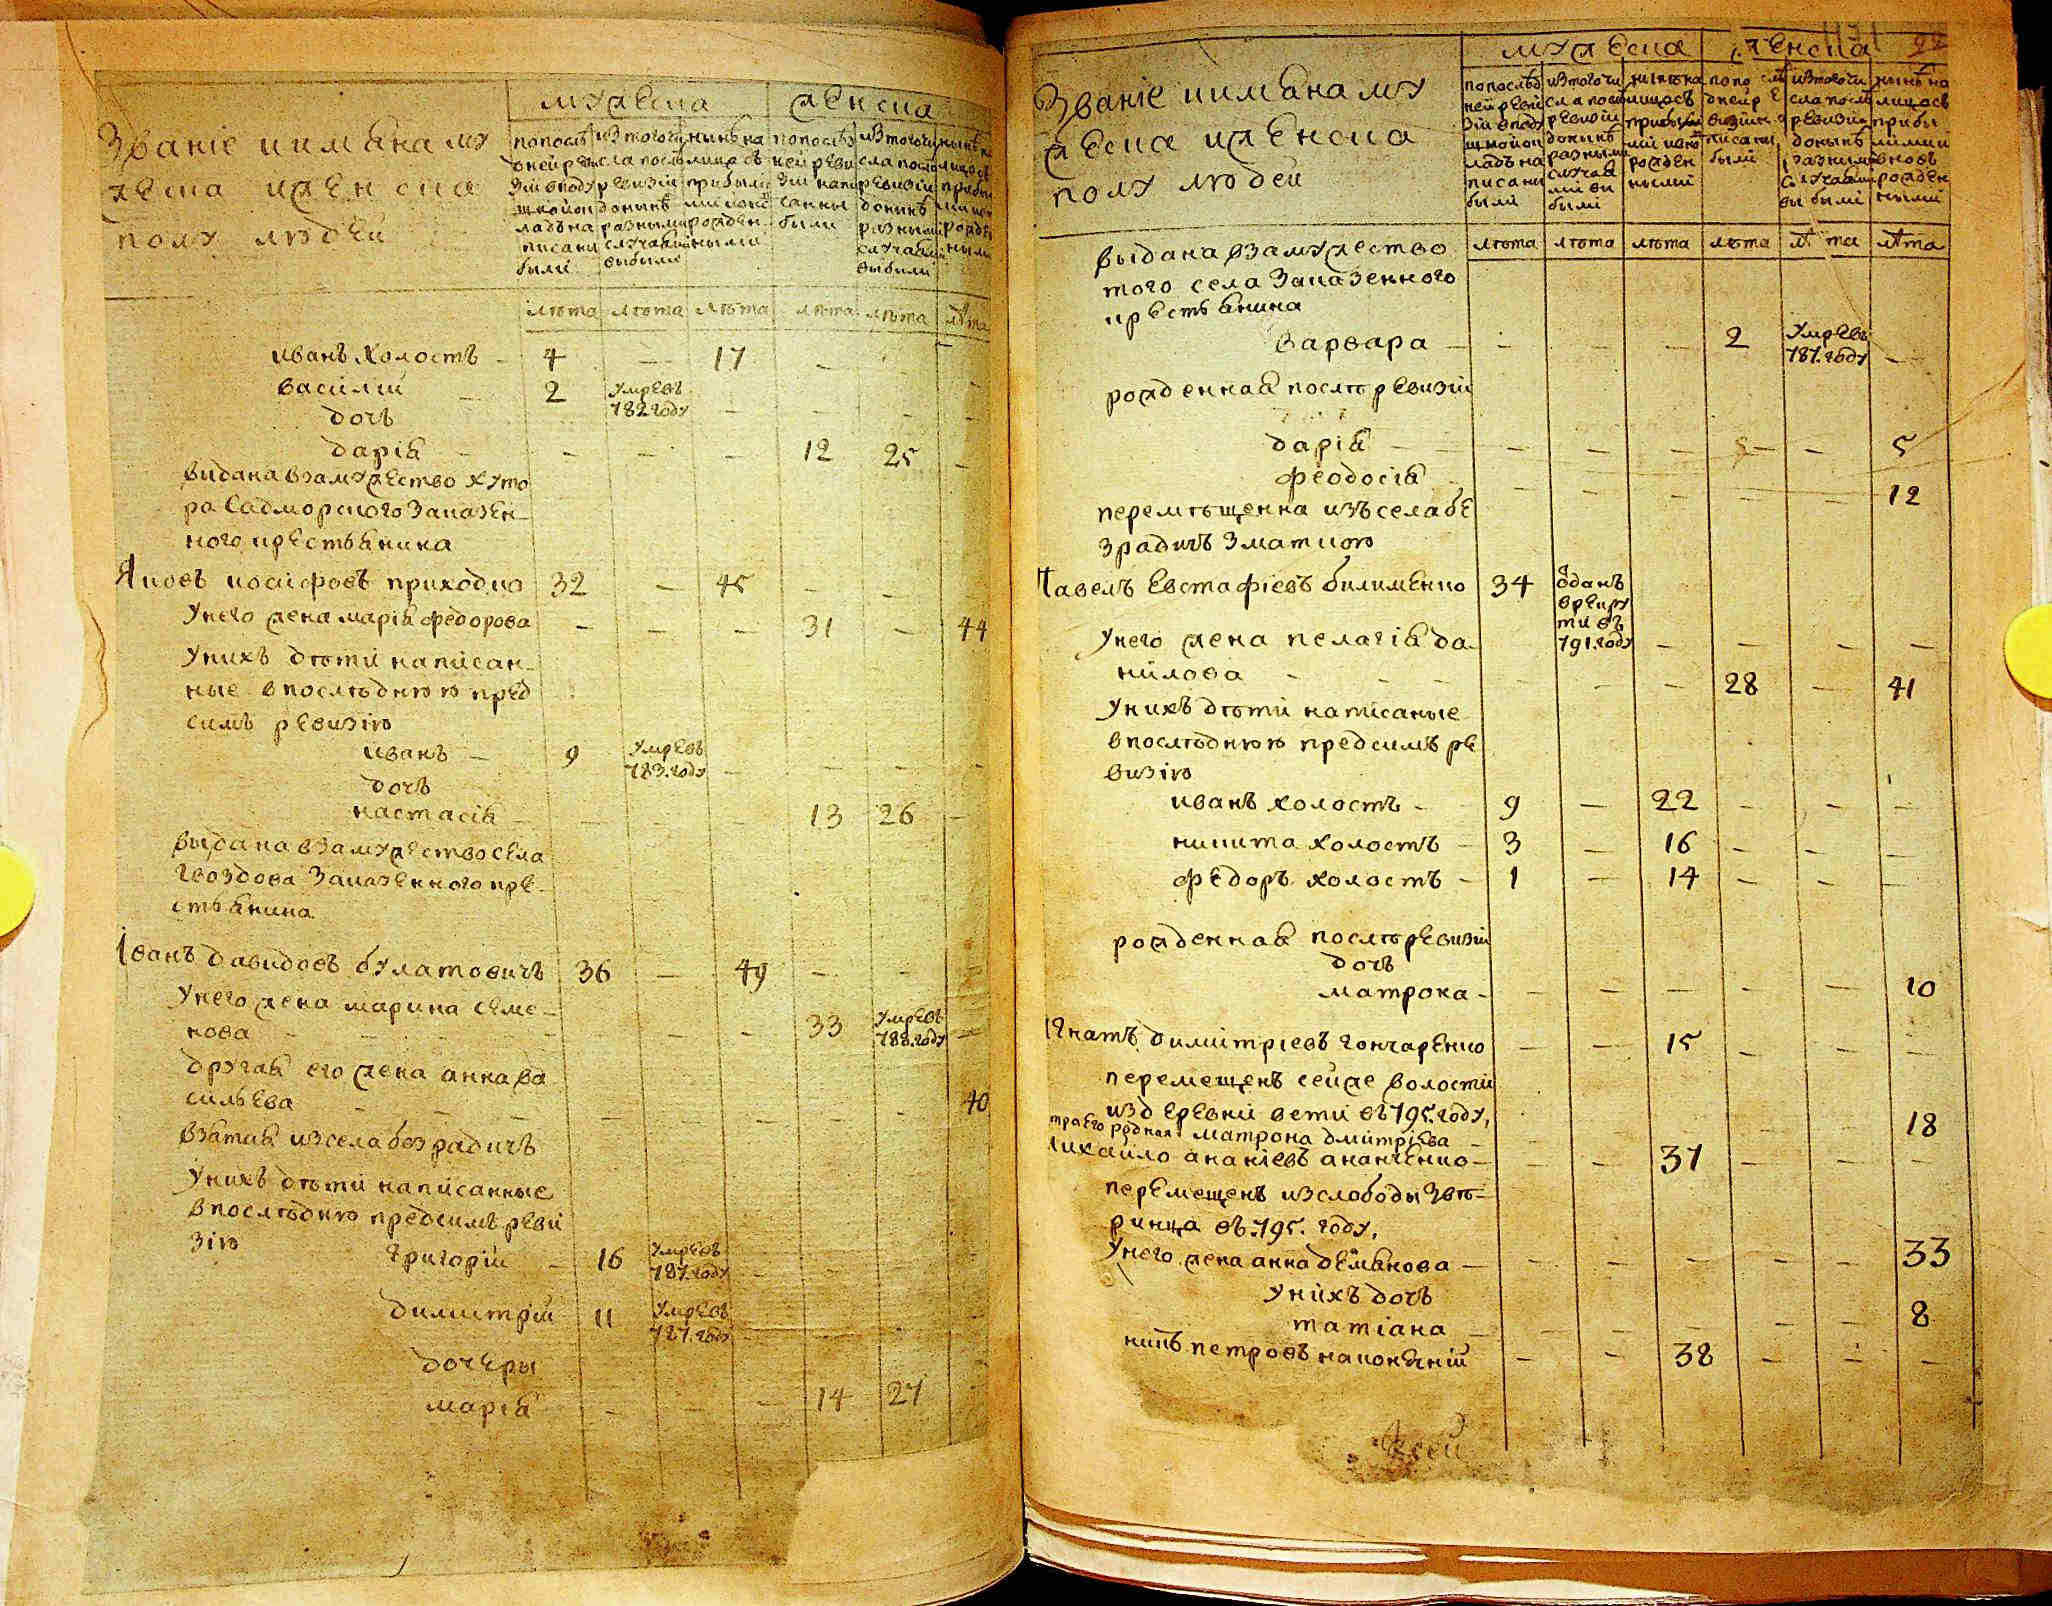 Званіе иимяна му
жеска иженска
полу людей
мужеска
женска
попослѣ
дней реви
зіи вподу
шномок
ладъ на
писани
были
изтогочи
сла послѣ
ревизіи
донынѣ
разными
случаями
выбыли
нынѣ на
лицо съ
прибыли
ми ново
рожден
ными
попослѣд
ней реви
зіи напи
санны
были
изтогочи
сла послѣ
ревизіи
донынѣ
разными
случаями
выбыли
лѣта лѣта лѣта лѣта лѣта лѣта
иванъ холостъ - 4 - 17 - - -
василій - 2 умре въ 782 году - - - -
дочь
дарія - - - - 12 25 -
видана взамужество хуто
ра Садморского Заказен-
ного крестьянина
Яковъ іосифовъ приходко 32 - 45 - - -
унего жена марія федорова - - - 31 - 44
унихъ дѣти написан-
ные впослѣднюю пред
симъ ревизію
иванъ - 9 умре въ 783. году - - - -
дочь
настасія - - - - 13 26 -
выдана взамужество села
гвоздова Заказенного кре-
стьянина
Іванъ давидовъ булатовичъ 36 - 49 - - -
унего жена марина семе-
нова - - - - 33 умре въ 788. году -
другая его жена анна ва
сильева - - - - - - 40
взятая изсела безрадичъ
унихъ дѣти написанные
впослѣднюю предсимъ реви
зію
григорій - 16 умре въ 787. году - - - -
димитрій 11 умре въ 787. году - - - -
дочеры
марія - - - 14 27 -
22
Званіе иимяна му
жеска иженска
полу людей
мужеска
женска
попослѣд
ней реви
зіи вподу
шномок
ладъ на
писани
были
изтогочи
сла послѣ
ревизіи
донынѣ
разными
случая
ми вы
были
нынѣ на
лицо съ
прибылы
ми ново
рожден
ными
попослѣ
дней ре
визіи
писаны
были
изтогочи
сла послѣ
ревизіи
донынѣ
разными
случаями
выбыли
нынѣ на
лицо съ
прибы
лими
вновь
рожден
ными
лѣта лѣта лѣта лѣта лѣта лѣта
выдана взамужество
того села Заказенного
крестьянина
варвара - - - - 2 умре въ 787. году -
рожденная послѣ ревизіи
дарія - - - - - - 5
феодосія - - - - - - 12
перемѣщенна изъ села бе
зрадичъ Зматкою
Павелъ Евстафіевъ билименко 34 Оданъ в рекруты въ 791. году - - - -
унего жена пелагія да-
нилова - - - - 28 - 41
унихъ дѣти написаные
впослѣднюю предсимъ ре
визію
иванъ холостъ - 9 - 22 - - -
никита холостъ - 3 - 16 - - -
федоръ холостъ - 1 - 14 - - -
рожденная послѣ ревизіи
дочь
матрона - - - - - - 10
Ігнатъ димитріевъ гончаренко - - 15 - - -
перемещенъ сейже волости
издеревни вети въ 795. году,
сестра его родная матрона дмитріева - - - - - - 18
Михайло ананіевъ ананченко - - - 37 - - -
перемещенъ изслободы Звѣ-
ринца въ. 795. году,
унего жена анна демянова - - - - - - 33
унихъ дочь
татіана - - - - - - 8
никъ петровъ наконечній - - 38 - - -